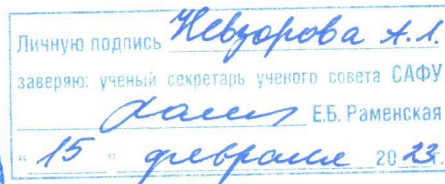 Личную подпись Невзорова А.Л.
заверяю: ученый секретарь ученого совета САФУ
Е.Б. Раменская
"15" февраля 2023